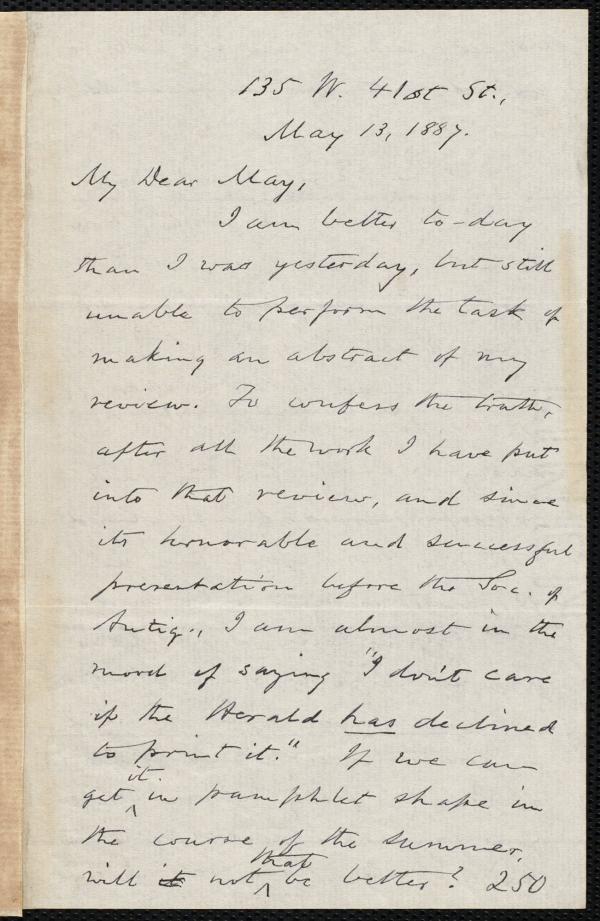 135 W. 41st St.,
May 13, 1887.
My Dear May,
I am better to-day
than I was yesterday, but still
unable to perform the task of
making an abstract of my
review. To confess the truth,
after all the work I have put
into that review, and since
its honorable and successful
presentation before the Soc. of
Antiq., I am almost in the
mood of saying "I don't care
if the Herald has declined
to print it." If we can
get it in pamphlet shape in
the course of the summer,
will it not that be better? 250